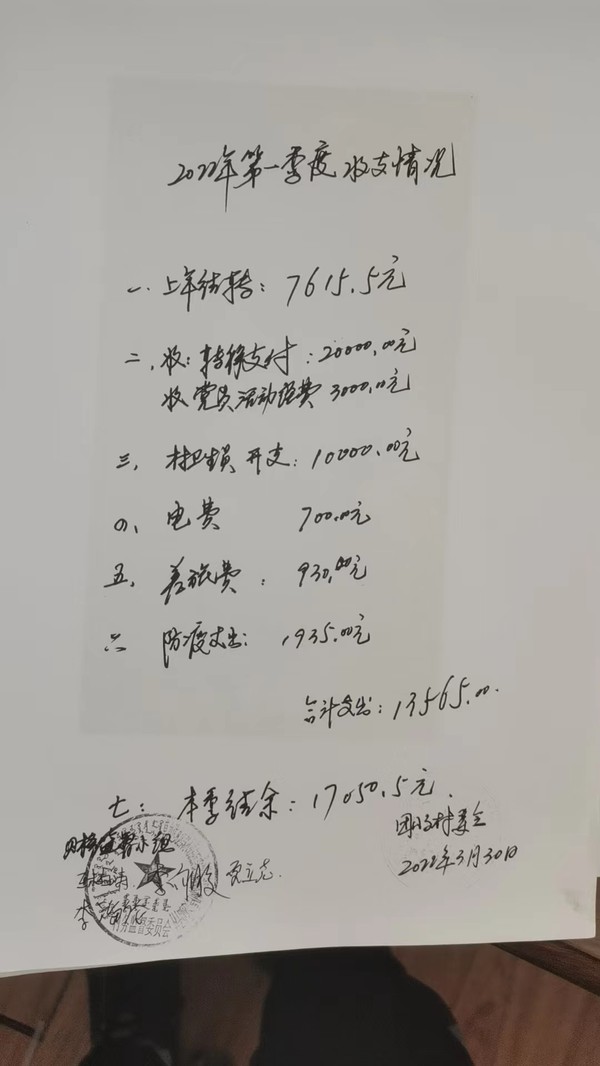 2022年第一季度收支情况
一、上年结转：7615.5元
二、收：转移支付：20000.00元
收党员活动经费 3000.00元
三、村卫生员开支：10000.00元
四、电费 700.00元
五、差旅费：930.00元
六 防疫支出：1935.00元
合计支出：13565.00.
七：本季结余：17050.5元.
团结村委会
2022年3月30日
监督小组
务监督委员会